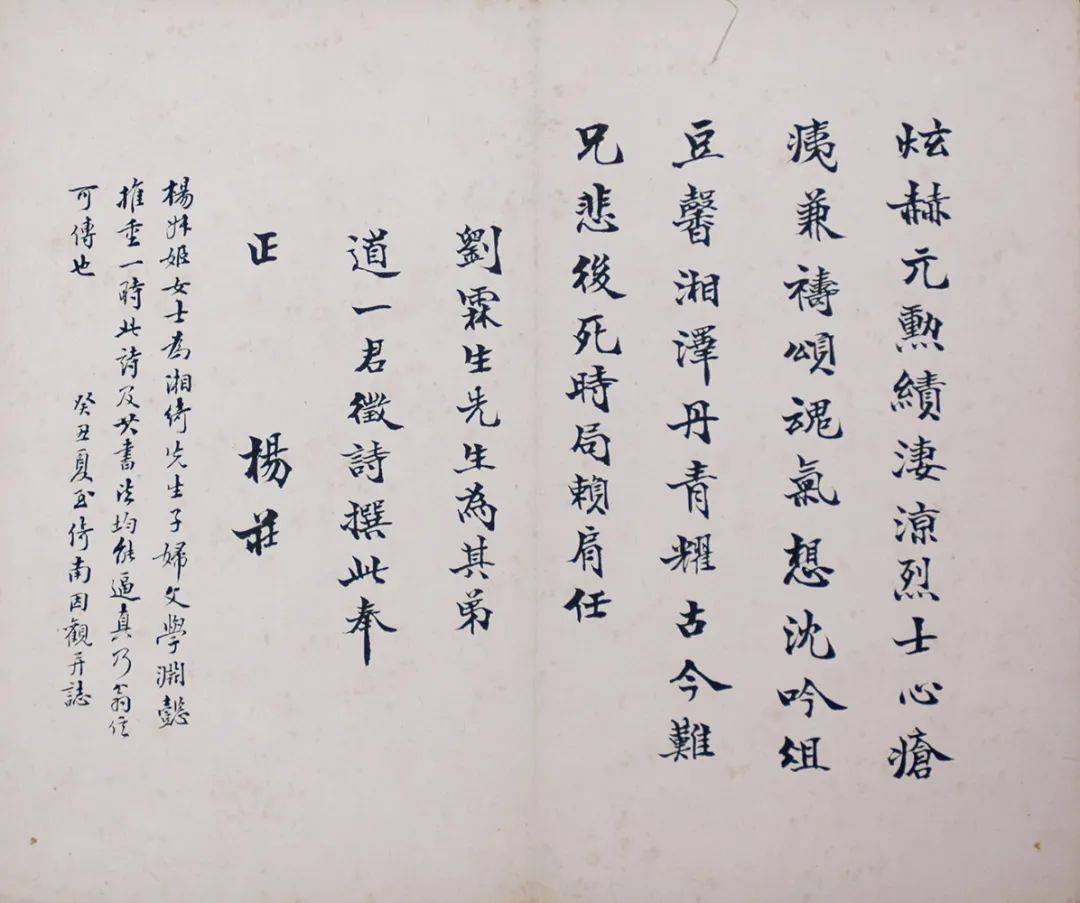 炫赫元勲績淒涼烈士心瘡
痍兼禱頌魂氣想沈吟組
豆馨湘澤丹青耀古今難
兄悲後死時局賴肩任
劉霖生先生為其弟
道一君徵詩撰此奉
正 楊莊
楊妹姬女士為湘綺先生子婦文學淵懿
推重一時此詩及其書法均能逼真乃翁信
可傳也 癸丑夏至倚南因觀并誌